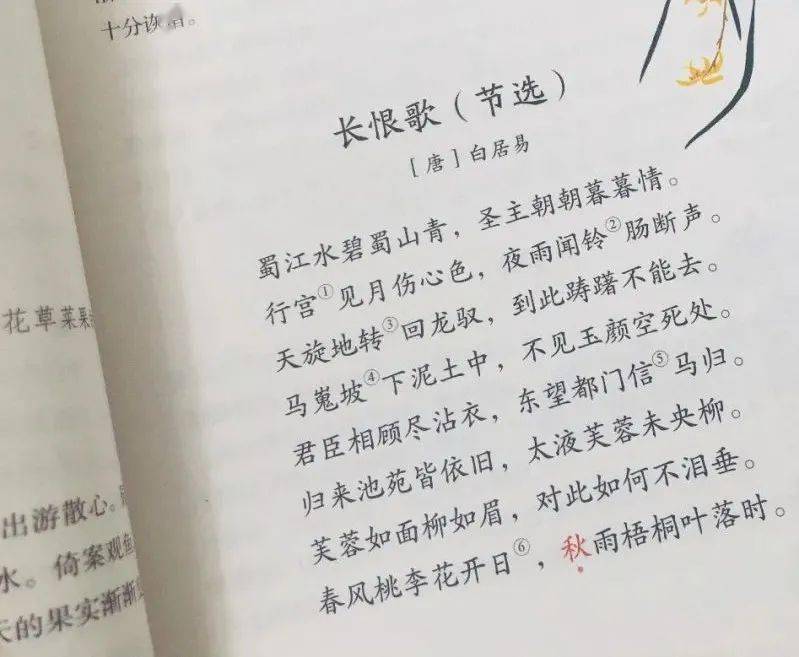 十分诙谐。
花草菜果
出游散心。
水。倚案观鱼
天的果实渐渐
长恨歌（节选）
［唐］白居易
蜀江水碧蜀山青，圣主朝朝暮暮情。
行宫①见月伤心色，夜雨闻铃②肠断声。
天旋地转③回龙驭，到此踌躇不能去。
马嵬坡④下泥土中，不见玉颜空死处。
君臣相顾尽沾衣，东望都门信⑤马归。
归来池苑皆依旧，太液芙蓉未央柳。
芙蓉如面柳如眉，对此如何不泪垂。
春风桃李花开日⑥，秋雨梧桐叶落时。